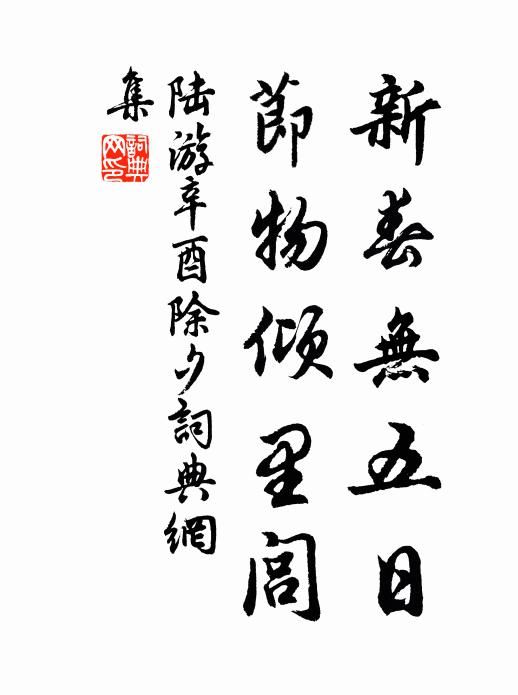 新春無五日
節物傾里閭
陸游辛酉除夕詞典網
集
詞典
网印